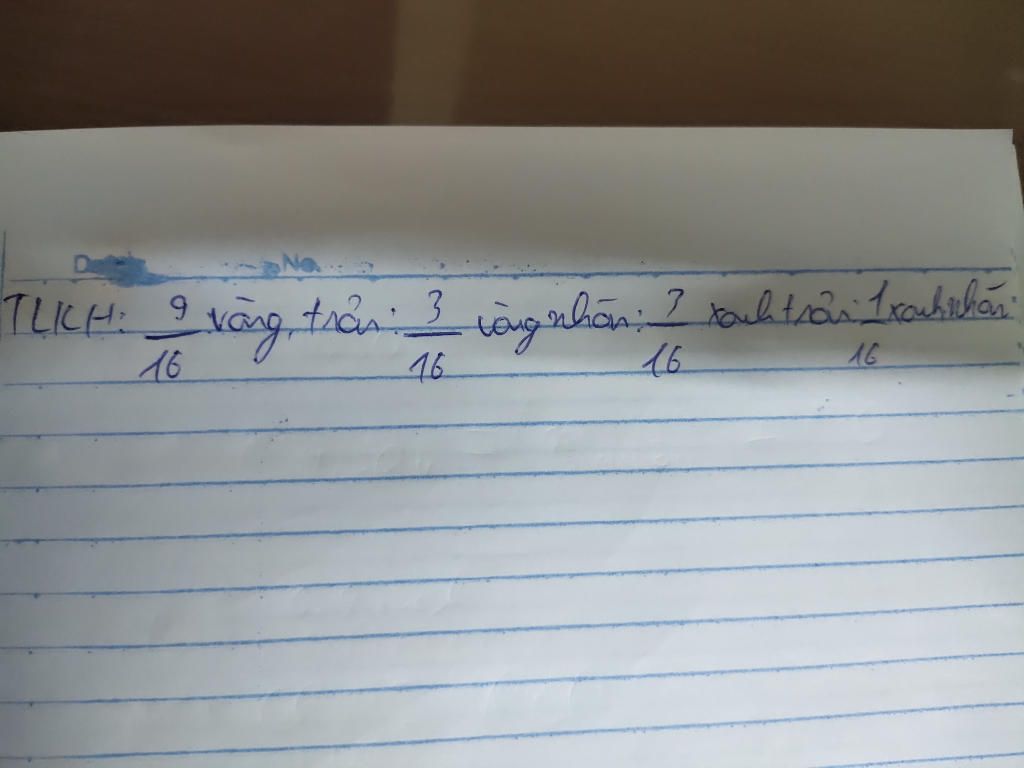 No.
TLKH: 9/16 vàng, trơn: 3/16 vàng nhăn: 3/16 xanh trơn: 1/16 xanh nhăn.